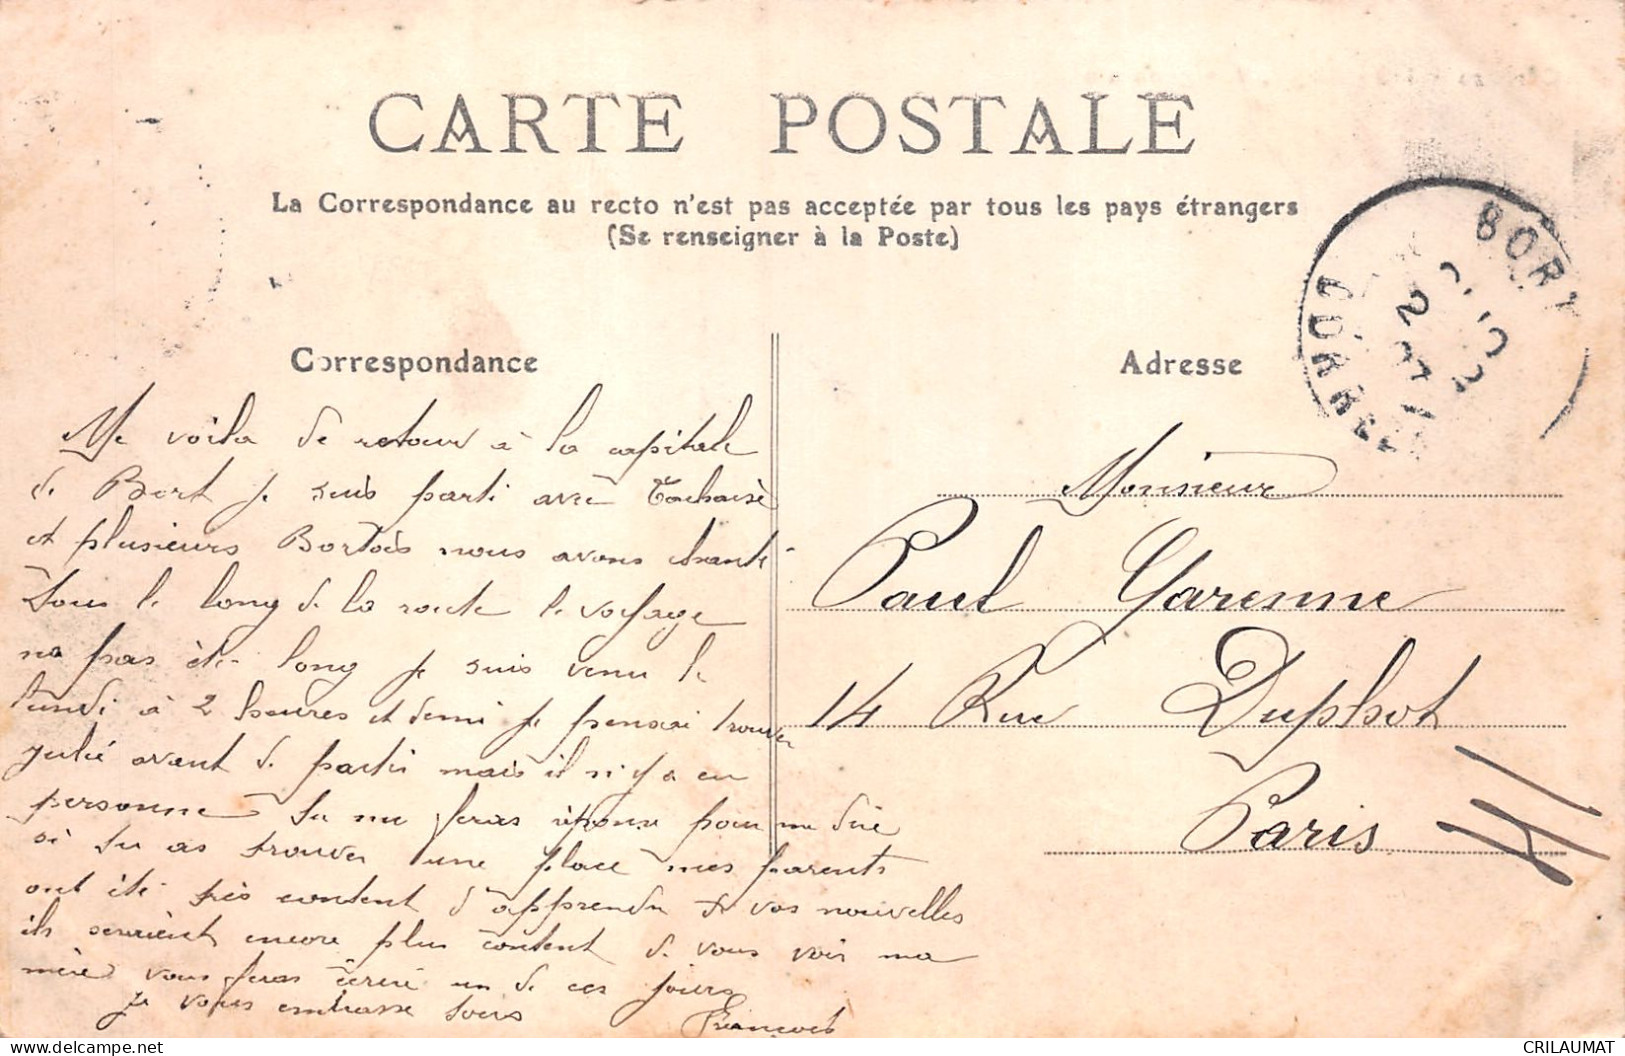 CARTE POSTALE
La Correspondance au recto n'est pas acceptée par tous les pays étrangers
(Se renseigner à la Poste)
BORT
CORRÈZE
Correspondance
Me voila de retour à la capitale
de Bort je suis parti avec
et plusieurs Bortois nous avons chanté
tous le long de la route le voyage
na pas été long je suis venu le
lundi à 2 heures et demi je pensai trouver
julié avant de partir mais il n'y a eu
personne tu me feras réponse pour me dire
si tu as trouver une place mes parents
ont été très content d'apprendre de vos nouvelles
ils seraient encore plus content de vous voir ma
mère vous feras écrire un de ces jours
je vous embrasse tous
François
Adresse
Monsieur
Paul Garenne
14 Rue Duphot
Paris
CRILAUMAT